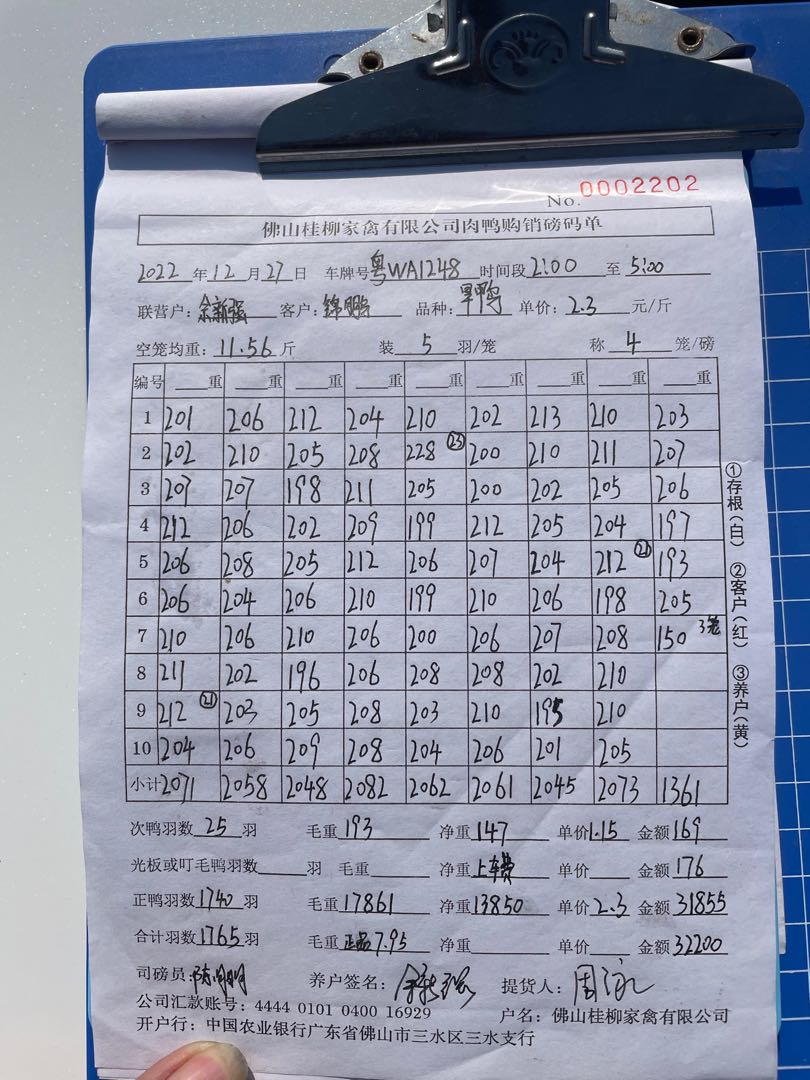 No. 0002202
佛山桂柳家禽有限公司肉鸭购销磅码单
2022 年 12 月 27 日 车牌号 粤WA1248 时间段 2:00 至 5:00
联营户: 余新强 客户: 锦鹏 品种: 旱鸭 单价: 2.3 元/斤
空笼均重: 11.56 斤 装 5 羽/笼 称 4 笼/磅
编号 重 重 重 重 重 重 重 重 重
1 201 206 212 204 210 202 213 210 203
2 202 210 205 208 228 ㉓ 200 210 211 207
3 207 207 198 211 205 200 202 205 206
4 212 206 202 209 199 212 205 204 197
5 206 208 205 212 206 207 204 212 ㉑ 193
6 206 204 206 210 199 210 206 198 205
7 210 206 210 206 200 206 207 208 150 3笼
8 211 202 196 206 208 208 202 210
9 212 ㉑ 203 205 208 203 210 195 210
10 204 206 209 208 204 206 201 205
小计 2071 2058 2048 2082 2062 2061 2045 2073 1361
次鸭羽数 25 羽 毛重 193 净重 147 单价 1.15 金额 169
光板或叮毛鸭羽数 羽 毛重 净重 上车费 单价 金额 176
正鸭羽数 1740 羽 毛重 17861 净重 13850 单价 2.3 金额 31855
合计羽数 1765 羽 毛重 正品 7.95 净重 单价 金额 32200
司磅员: 陈明 养户签名: 余新强 提货人: 周
公司汇款账号: 4444 0101 0400 16929 户名: 佛山桂柳家禽有限公司
开户行: 中国农业银行广东省佛山市三水区三水支行
①存根(白) ②客户(红) ③养户(黄)